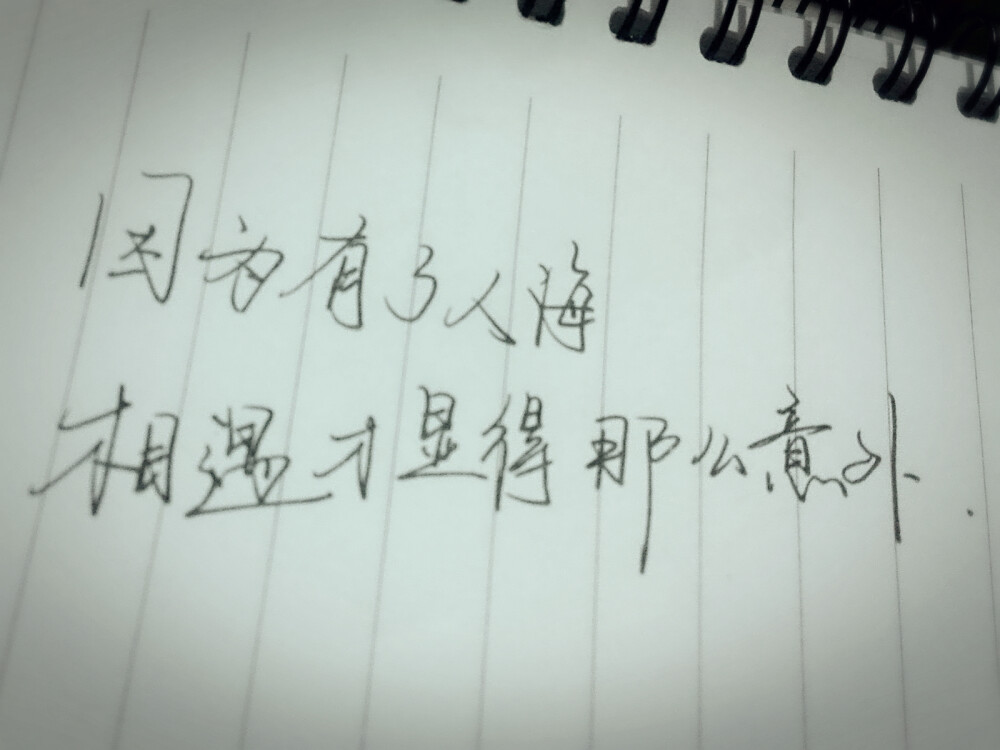 因为有了人海
相遇才显得那么意外.